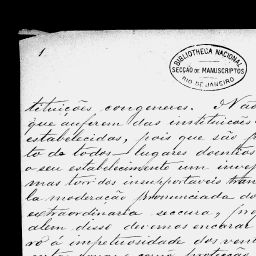 1
BIBLIOTHECA NACIONAL
SECÇÃO DE MANUSCRIPTOS
RIO DE JANEIRO
tituições congeneres. Não
que auferem das instituições
estabelecidas, pois que são
to de todos lugares doentios
o seu estabelecimento um
mas torrãos insupportaveis
la moderação pronunciada do
extraordinaria seccura,
alem disso devemos encarar
ro á impetuosidade dos